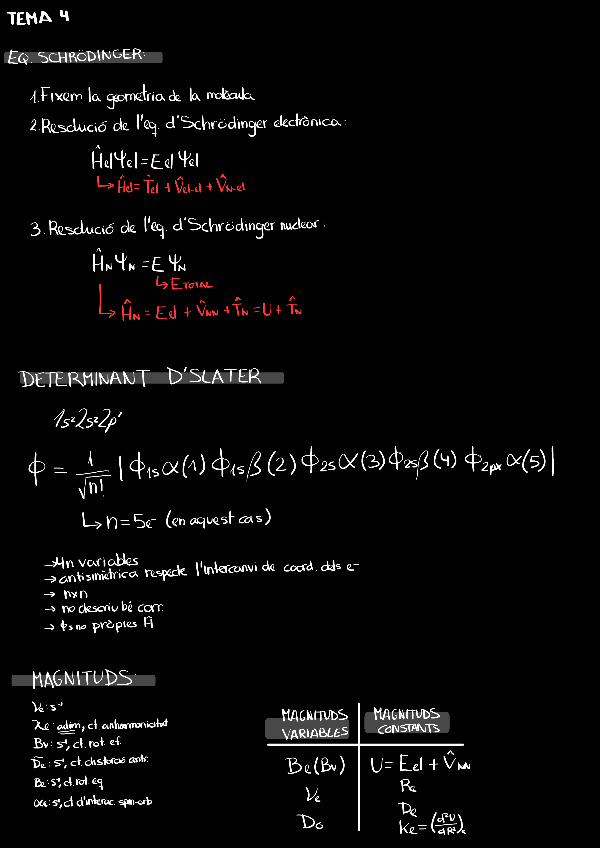 TEMA 4
EQ. SCHRÖDINGER:
1. Fixem la geometria de la molècula
2. Resolució de l'eq. d'Schrödinger electrònica:
Ĥel Ψel = Eel Ψel
↳ Ĥel = T̂el + V̂el-el + V̂N-el
3. Resolució de l'eq. d'Schrödinger nuclear:
ĤN ΨN = E ΨN
↳ ETOTAL
↳ ĤN = Eel + V̂NN + T̂N = U + T̂N
DETERMINANT D'SLATER
1s²2s²2p¹
ϕ = 1/√n! | ϕ1s α(1) ϕ1s β(2) ϕ2s α(3) ϕ2s β(4) ϕ2px α(5) |
↳ n = 5e- (en aquest cas)
→ 4n variables
→ antisimètrica respecte l'intercanvi de coord. dels e-
→ nxn
→ no descriu bé corr.
→ ϕs no pròpies Ĥ
MAGNITUDS:
νe: s⁻¹
Xe: adim, ct. anharmonicitat
Bv: s⁻¹, ct. rot. ef.
D̄e: s⁻¹, ct. distorsió centr.
Be: s⁻¹, ct. rot. eq
αe: s⁻¹, ct d'interac. spin-orb
MAGNITUDS VARIABLES
Be (Bv)
νe
D0
MAGNITUDS CONSTANTS
U = Eel + V̂NN
Re
De
Ke = (d²U/dR²)e